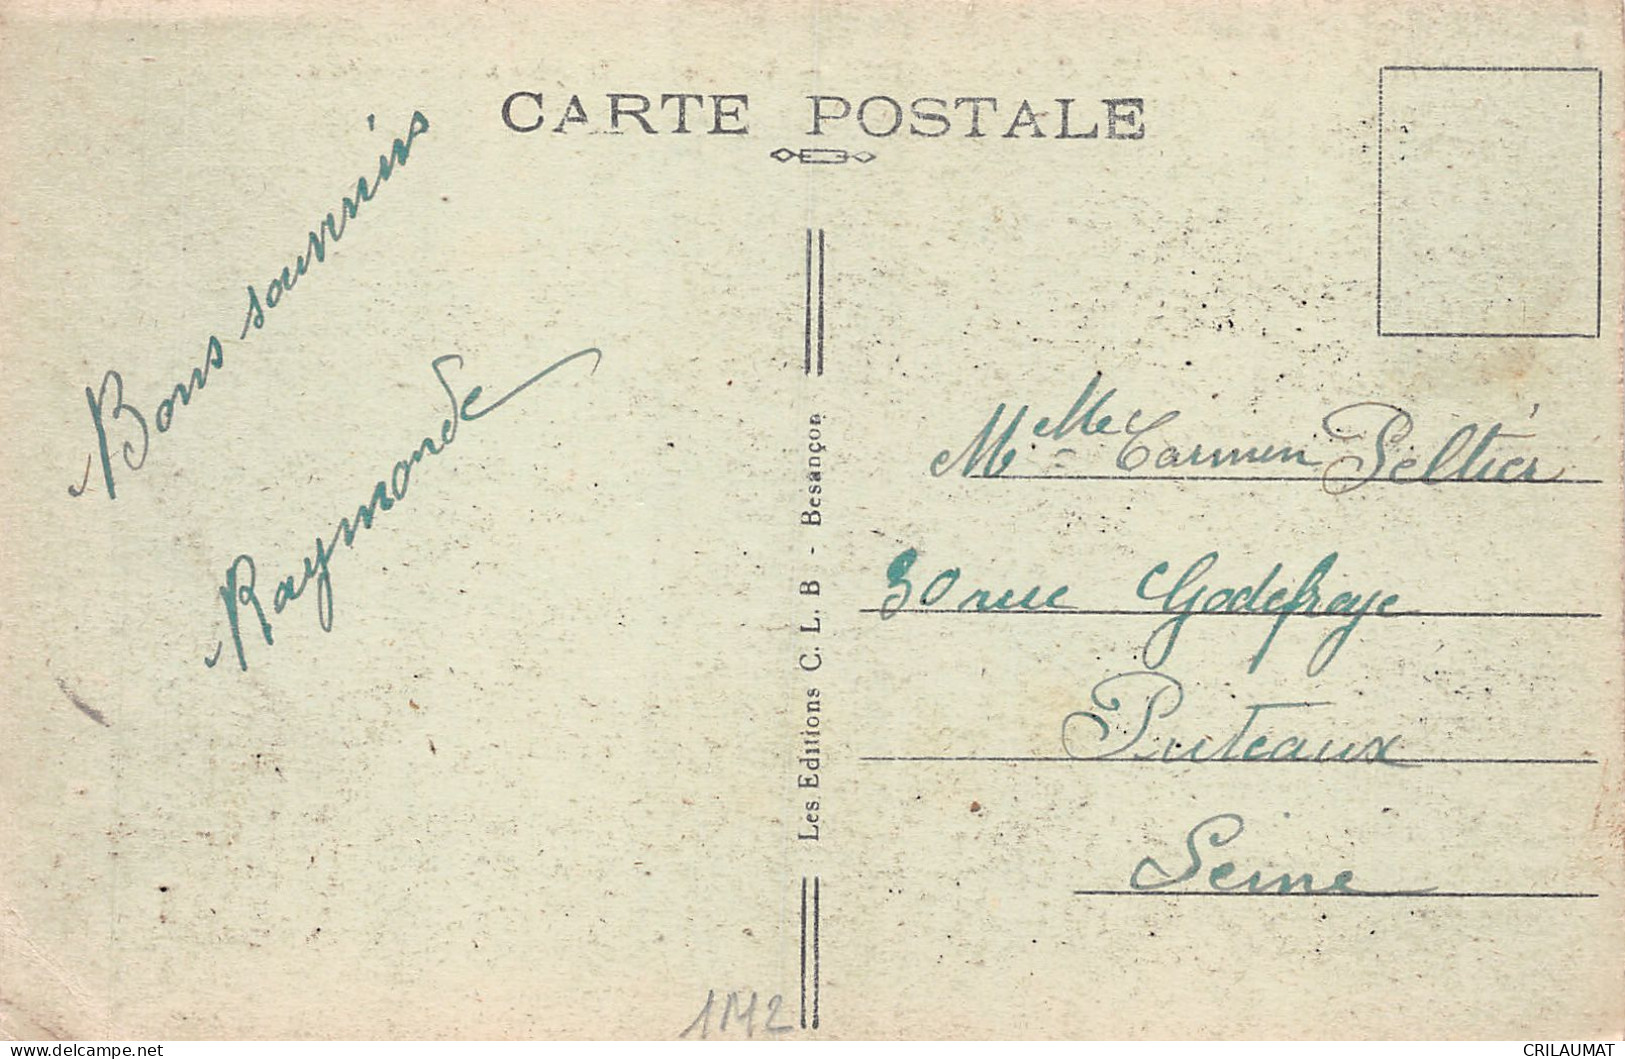 CARTE POSTALE
Bons souvenirs
Raymonde
Les Editions C. L. B - Besançon
Mlle Carmen Peltier
30 rue Godefroye
Puteaux
Seine
1M2
CRILAUMAT